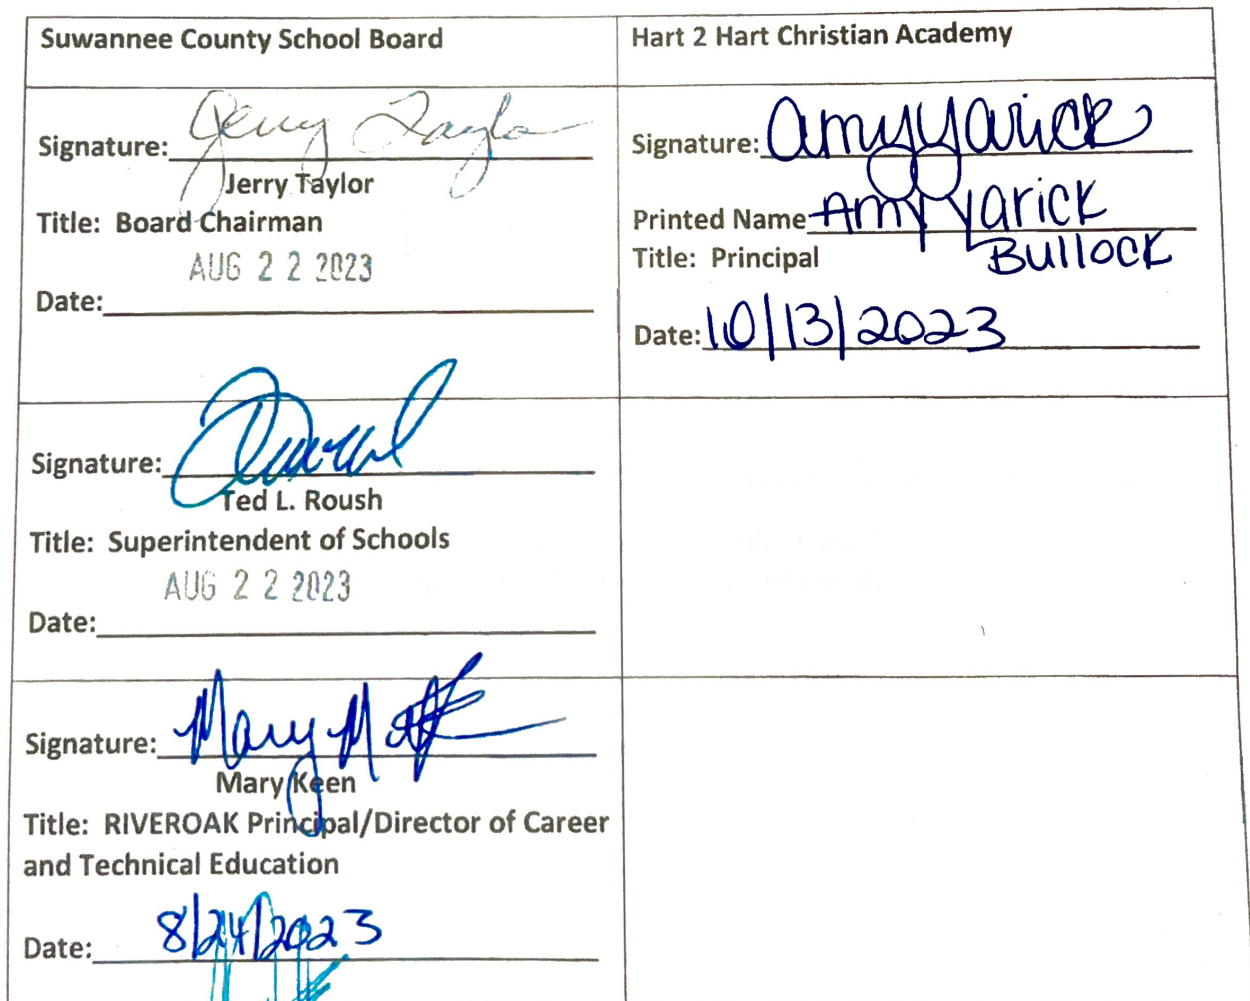 Suwannee County School Board
Signature: Jerry Taylor
Jerry Taylor
Title: Board Chairman
AUG 2 2 2023
Date:
Hart 2 Hart Christian Academy
Signature: Amy Yarick
Printed Name Amy Yarick
Bullock
Title: Principal
Date: 10/13/2023
Signature:
Ted L. Roush
Title: Superintendent of Schools
AUG 2 2 2023
Date:
Signature: Mary
Mary Keen
Title: RIVEROAK Principal/Director of Career
and Technical Education
Date: 8/24/2023